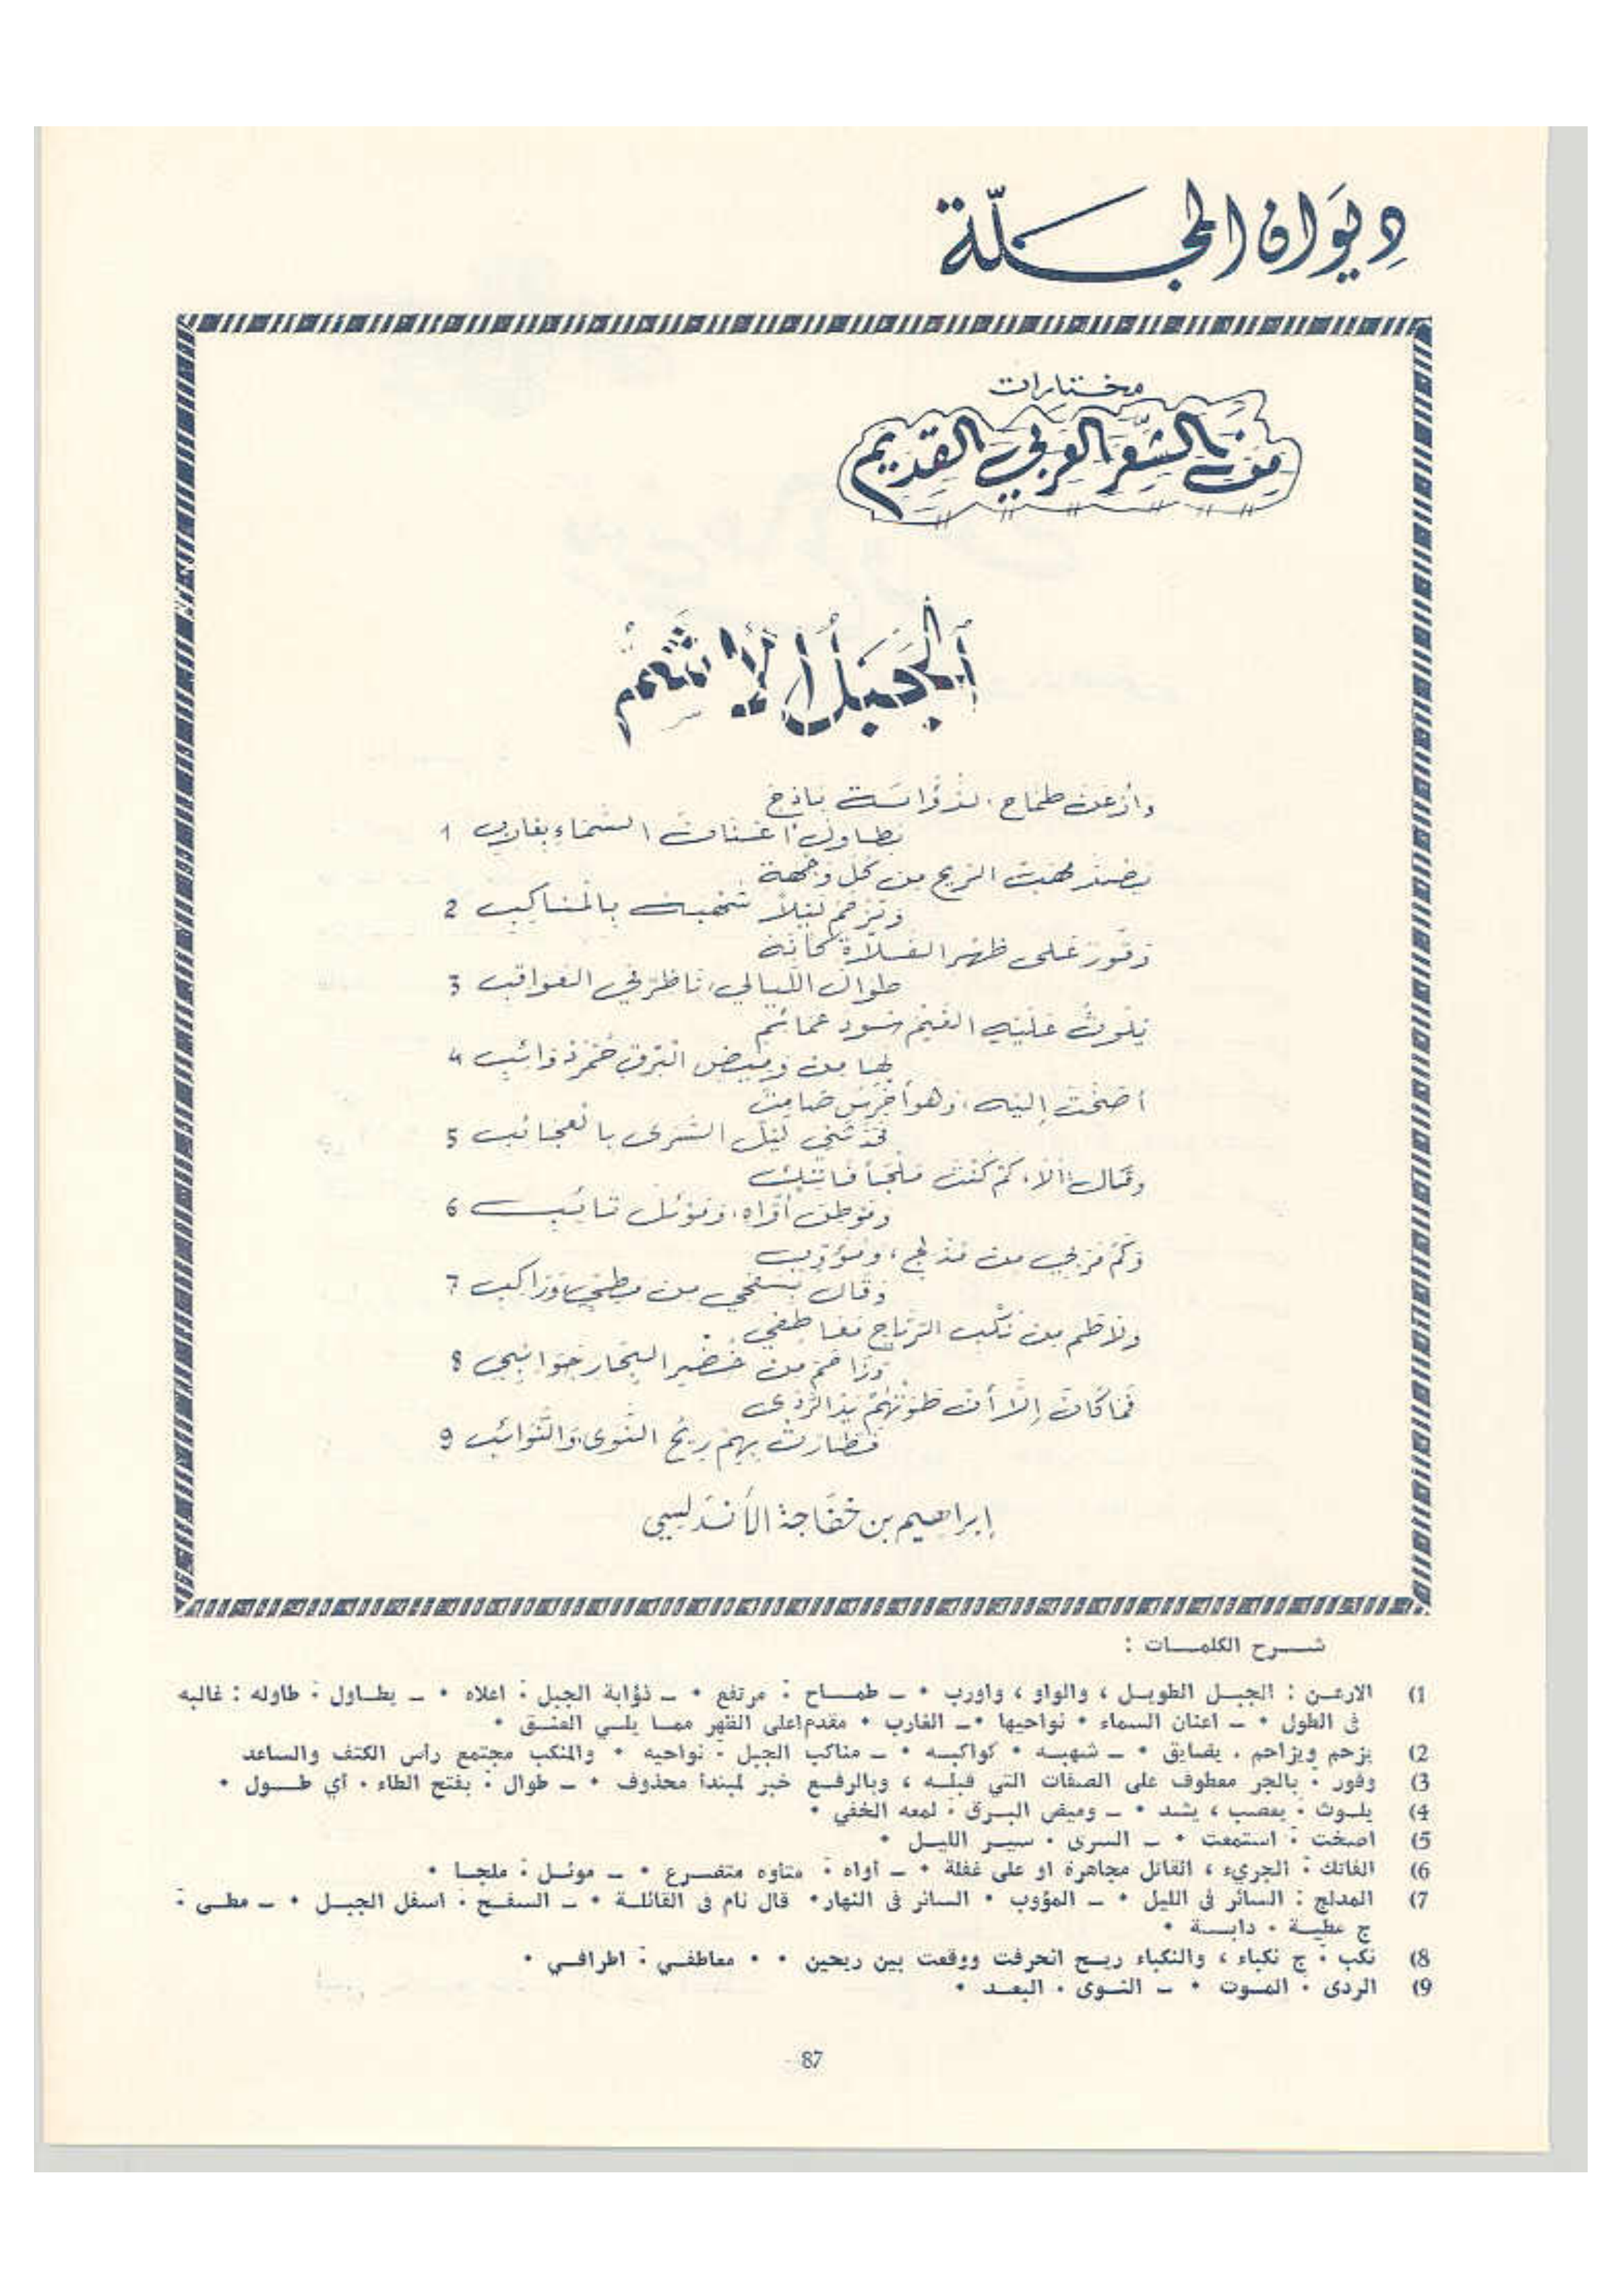 ديوان المجلة
مختارات
من الشعر العربي القديم
الجبل الأشم
وأرعن طماح الذؤابة باذخ
يطاول أعنان السماء بغارب 1
يصد مهب الريح من كل وجهة
ويزحم ليلا شهبه بالمناكب 2
وقور على ظهر الفلاة كأنه
طوال الليالي، ناظر في العواقب 3
يلوث عليه الغيم سود عمائم
لها من وميض البرق حمر ذوائب 4
أصخت إليه، وهو أخرس صامت
فحدثني ليل السرى بالعجائب 5
وقال: ألا، كم كنت ملجأ فاتك
وموطن أواه، وموئل تائب 6
وكم مر بي من مدلج، ومؤوب
وقال بسفحي من مطي وراكب 7
ولاطم من نكب الرياح معاطفي
وزاحم من خضر البحار جوانبي 8
فما كان إلا أن طوتهم يد الردى
فطارت بهم ريح النوى والنوائب 9
إبراهيم بن خفاجة الأندلسي
شرح الكلمات :
1) الارعن : الجبل الطويل ، والواو ، واورب • ــ طماح : مرتفع • ــ ذؤابة الجبل : اعلاه • ــ يطاول : طاوله : غالبه
فى الطول • ــ اعنان السماء • نواحيها • ــ الغارب • مقدم اعلى الظهر مما يلي العنق •
2) يزحم ويزاحم . يضايق • ــ شهبه • كواكبه • ــ مناكب الجبل : نواحيه • والمنكب مجتمع رأس الكتف والساعد
3) وقور . بالجر معطوف على الصفات التي قبله ، وبالرفع خبر لمبتدأ محذوف • ــ طوال : بفتح الطاء . أي طول •
4) يلوث : يعصب ، يشد • ــ وميض البرق : لمعه الخفي •
5) اصخت : استمعت • ــ السرى . سير الليل •
6) الفاتك : الجريء ، القاتل مجاهرة او على غفلة • ــ أواه : متاوه متضرع • ــ موئل : ملجا •
7) المدلج : السائر فى الليل • ــ المؤوب • السائر فى النهار • قال نام فى القائلة • ــ السفح : اسفل الجبل • ــ مطى :
ج مطية . دابة •
8) نكب : ج نكباء ، والنكباء ريح انحرفت ووقعت بين ريحين • • معاطفي : اطرافي •
9) الردى . الموت • ــ النوى . البعد •
87